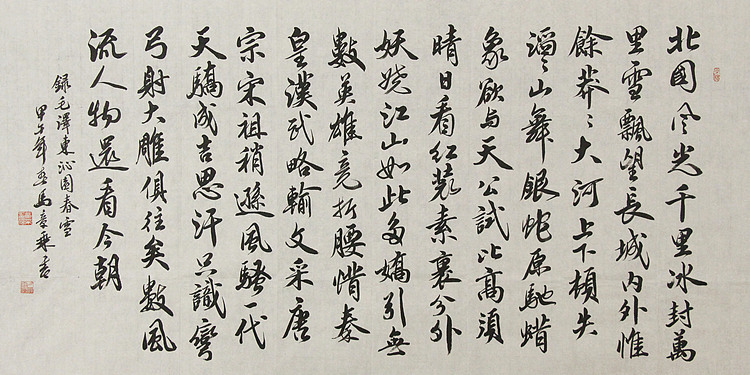 北國风光千里冰封萬
里雪飄望長城内外惟
餘莽〻大河上下頓失
滔〻山舞銀蛇原馳蜡
象欲与天公試比高須
晴日看红裝素裹分外
妖嬈江山如此多嬌引無
數英雄竞折腰惜秦
皇漢武略輸文采唐
宗宋祖稍遜風騷一代
天驕成吉思汗只識彎
弓射大雕俱往矣數風
流人物還看今朝
録毛澤東沁園春雪
甲午年